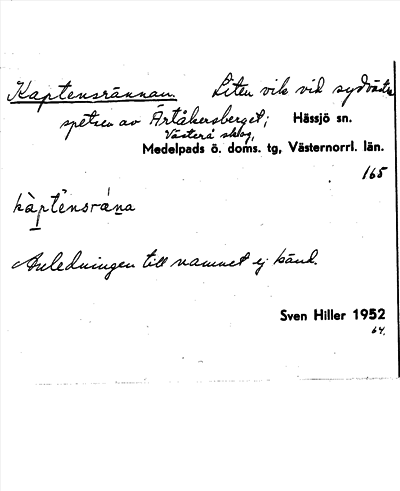 Kaptensrännan. Liten vik vid sydvästra
spetsen av Årtåkersberget; Hässjö sn.
Västerå skog,
Medelpads ö. doms. tg, Västernorrl. län.
165
kàptensrána
Anledningen till namnet ej känd.
Sven Hiller 1952
64.